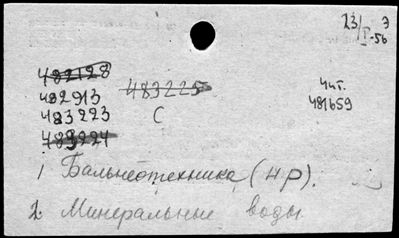 23/I-56 Э
482128
482913 483225 Чит.
483223 С 481659
483224
1 Бальнеотехника (НР).
2 Минеральные воды